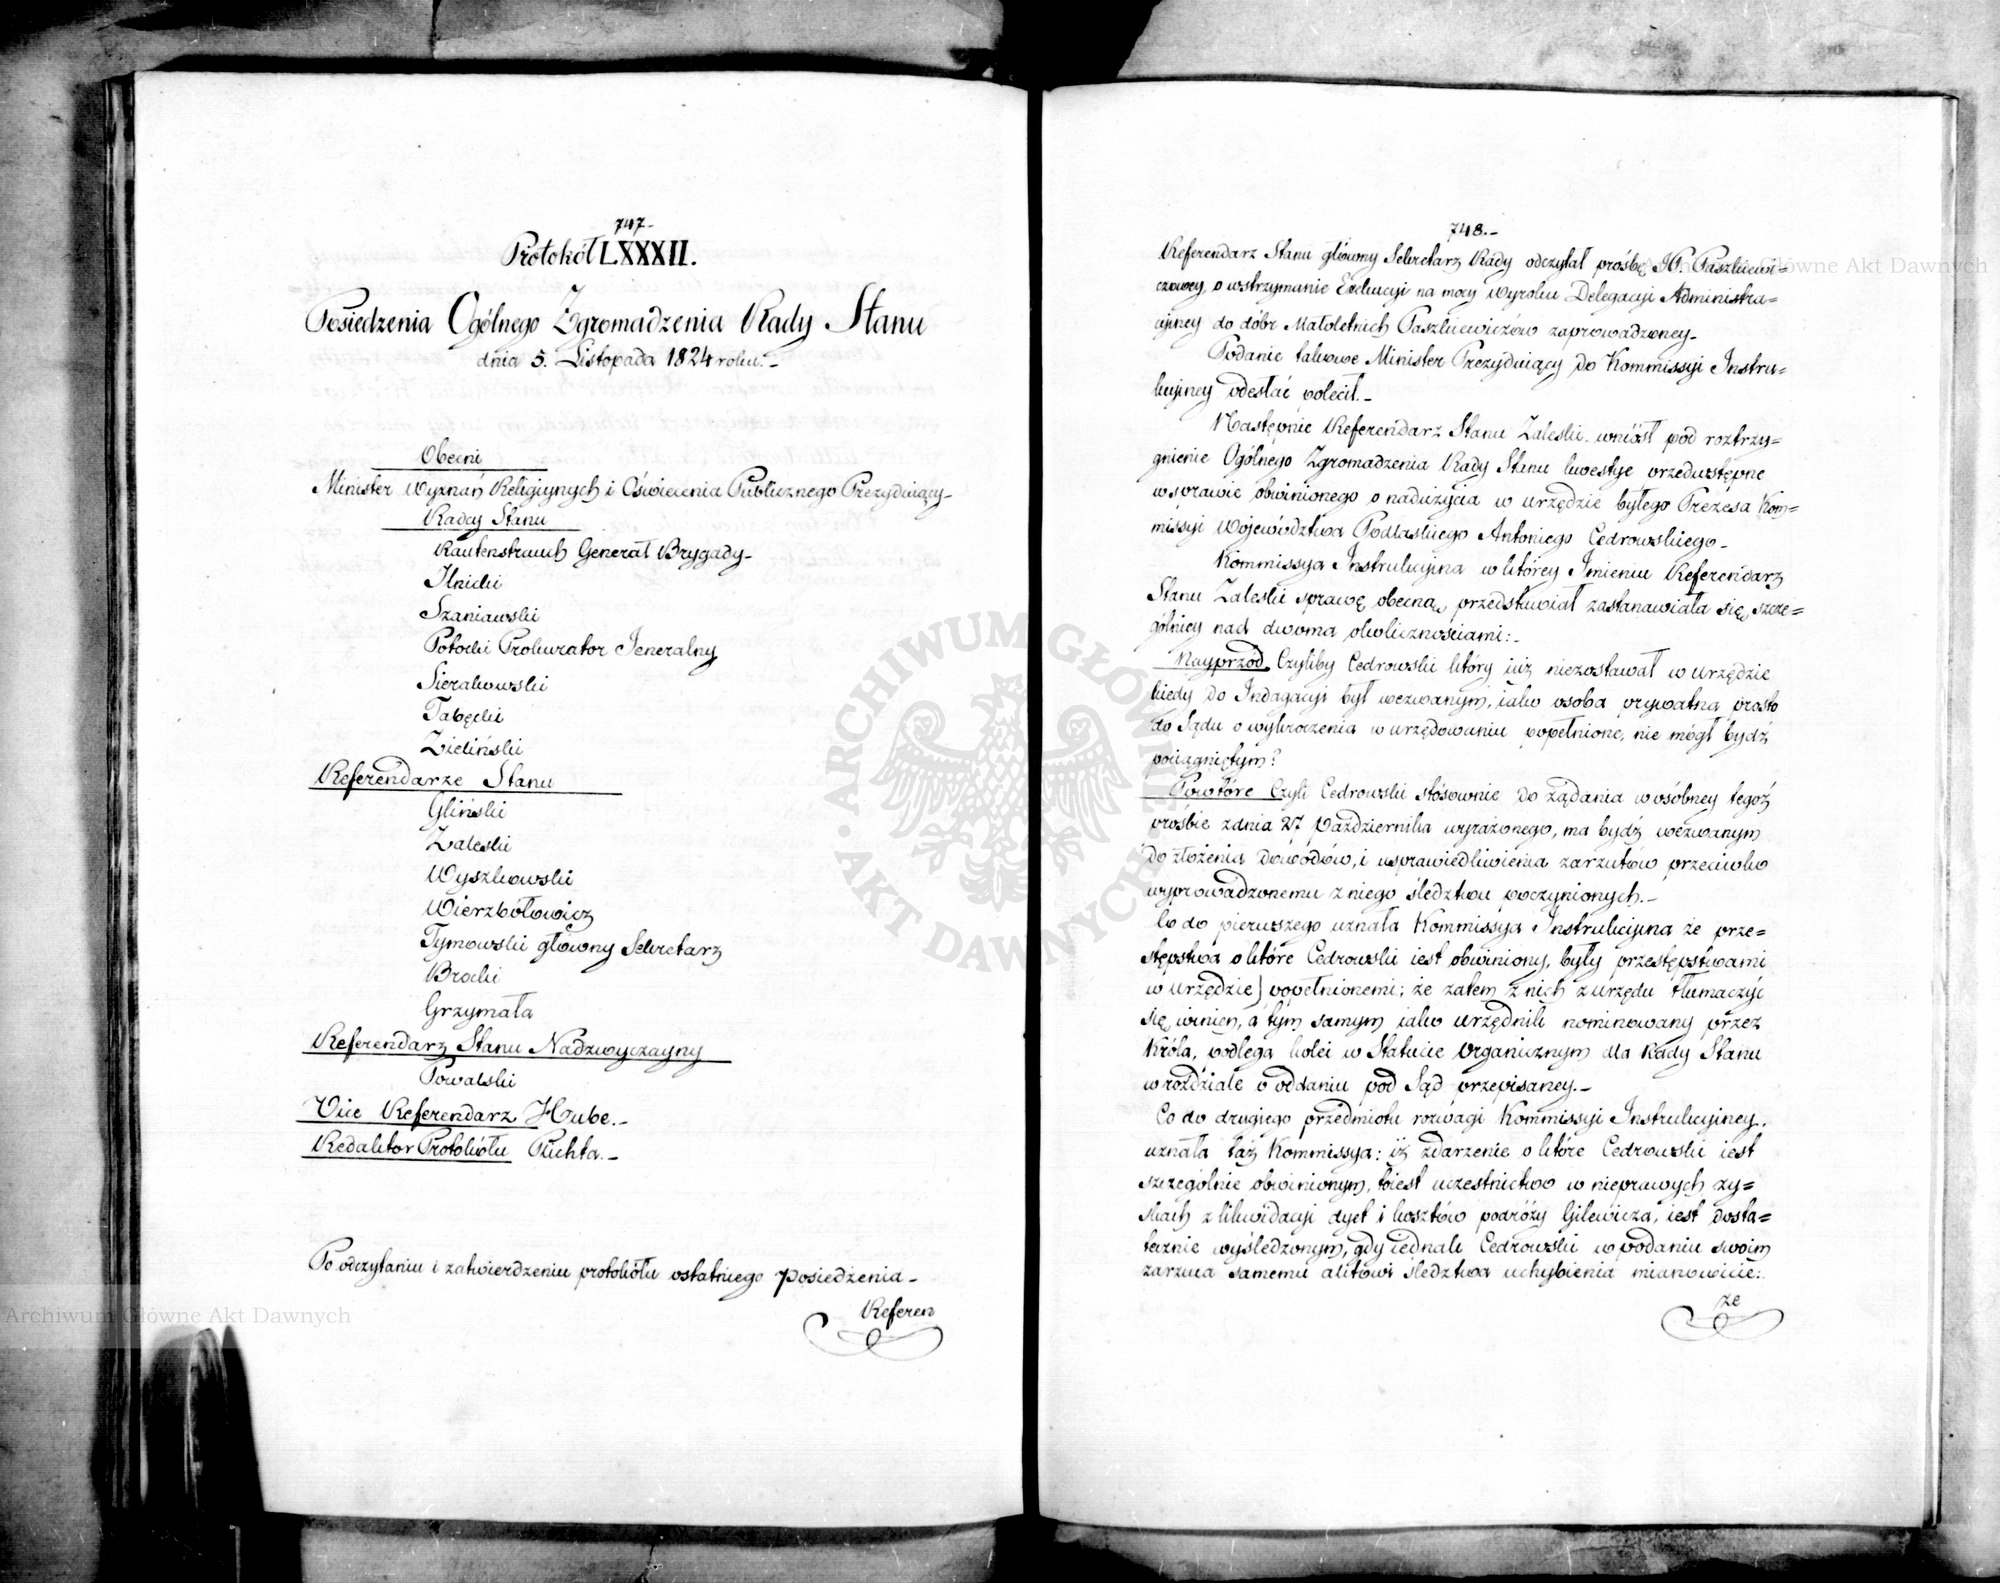 747.-
Protokół LXXXII.
Posiedzenia Ogólnego Zgromadzenia Rady Stanu
dnia 5. Listopada 1824 roku.-
Obecni
Minister Wyznań Religiynych i Oświecenia Publicznego Prezyduiący-
Radcy Stanu
Rautenstrauch Generał Brygady-
Ilnicki
Szaniawski
Potocki Prokurator Jeneralny
Sierakowski
Tabęcki
Zieliński
Referendarze Stanu
Gliński
Zaleski
Wyszkowski
Wierzbołowicz
Tymowski główny Sekretarz
Brocki
Grzymała
Referendarz Stanu Nadzwyczayny
Powalski
Vice Referendarz Hube.-
Redaktor Protokółu Puchta.-
Po odczytaniu i zatwierdzeniu protokółu ostatniego posiedzenia-
Referen
748.-
Referendarz Stanu główny Sekretarz Rady odczytał prośbę JP. Paszkiewi=
czowey, o wstrzymanie Exekucyi na mocy wyroku Delegacyi Administra=
cyiney do dóbr Małoletnich Paszkiewiczów zaprowadzoney-
Podanie takowe Minister Prezyduiący do Kommissyi Instru=
kcyiney odesłać polecił.-
Następnie Referendarz Stanu Zaleski wniósł pod roztrzy=
gnienie Ogólnego Zgromadzenia Rady Stanu kwestye przedwstępne
w sprawie obwinionego o nadużycia w urzędzie byłego Prezesa Kom=
missyi Województwa Podlaskiego Antoniego Cedrowskiego-
Kommissya Instrukcyina w którey Imieniu Referendarz
Stanu Zaleski sprawę obecną przedstawiał zastanawiała się szcze=
gólniey nad dwoma okolicznościami:-
Nayprzód Czyliby Cedrowski który iuż niezostawał w urzędzie
kiedy do Indagacyi był wezwanym, iako osoba prywatna prosto
do Sądu o wykroczenia w urzędowaniu popełnione, nie mógł bydź
pociągniętym?
Powtóre Czyli Cedrowski stósownie do żądania w osóbney tegoż
prośbie z dnia 27 Października wyrażonego, ma bydź wezwanym
do złożenia dowodów, i usprawiedliwienia zarzutów przeciwko
wyprowadzonemu z niego śledztwu poczynionych.-
Co do pierwszego uznała Kommissya Instrukcyina że prze=
stępstwa o które Cedrowski iest obwiniony, były przestępstwami
w urzędzie popełnionemi; że zatem z nich z urzędu tłumaczyć
się winien, a tym samym iako urzędnik nominowany przez
Króla, podlega kolei w Statucie Organicznym dla Rady Stanu
w rozdziale o oddaniu pod Sąd przepisaney.-
Co do drugiego przedmiotu rozwagi Kommissyi Instrukcyiney,
uznała taż Kommissya: iż zdarzenie o które Cedrowski iest
szczególnie obwinionym, toiest uczestnictwo w nieprawych zy=
skach z likwidacyi dyet i kosztów podróży Gilewicza, iest dosta=
tecznie wyśledzonym, gdy iednak Cedrowski w podaniu swoim
zarzuca samemu aktowi śledztwa uchybienia mianowicie:
że
ARCHIWUM GŁÓWNE AKT DAWNYCH
Archiwum Główne Akt Dawnych
Archiwum Główne Akt Dawnych